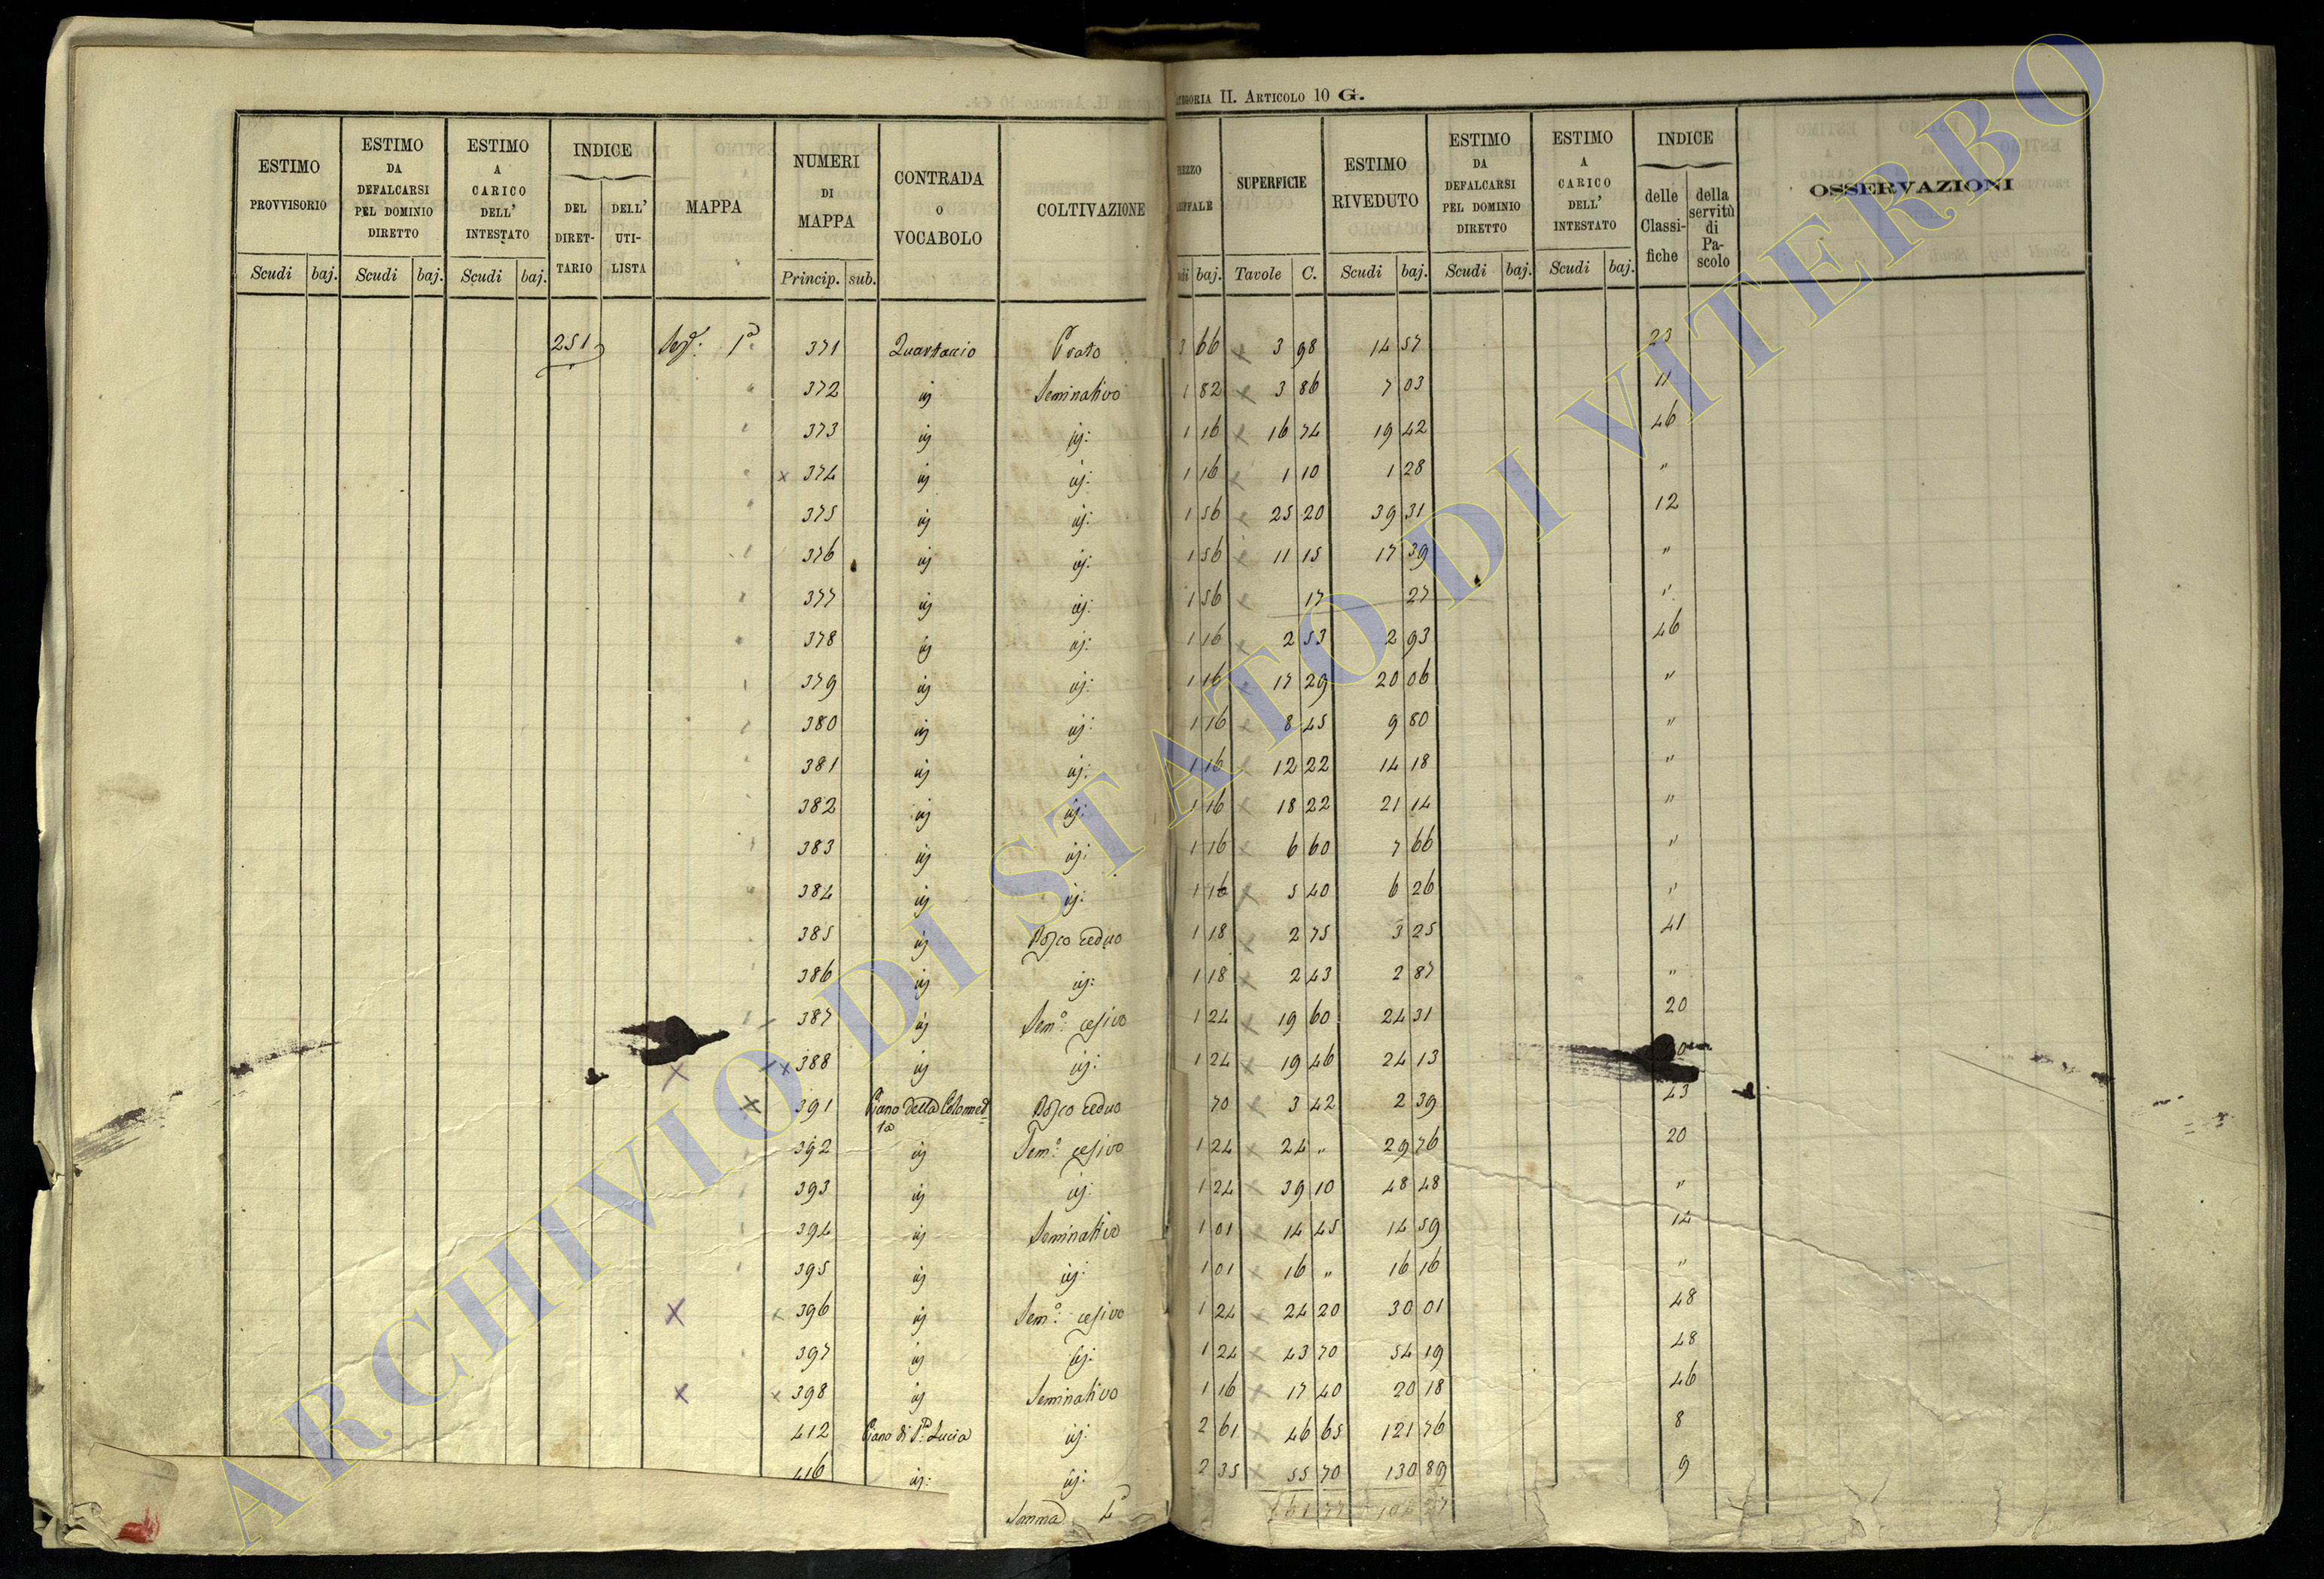 CATEGORIA II. ARTICOLO 10 G.
ESTIMO PROVVISORIO | ESTIMO DA DEFALCARSI PEL DOMINIO DIRETTO | ESTIMO A CARICO DELL' INTESTATO | INDICE | MAPPA | NUMERI DI MAPPA | CONTRADA O VOCABOLO | COLTIVAZIONE | SUPERFICIE | ESTIMO RIVEDUTO | ESTIMO DA DEFALCARSI PEL DOMINIO DIRETTO | ESTIMO A CARICO DELL' INTESTATO | INDICE | OSSERVAZIONI
DEL DIRETTARIO | DELL' UTILISTA | delle Classifiche | della servitù di Pascolo
Scudi | baj. | Scudi | baj. | Scudi | baj. | Princip. | sub. | baj. | Tavole | C. | Scudi | baj. | Scudi | baj. | Scudi | baj.
251 | 1ª | 371 | Quartaccio | Prato | 3 66 | 3 98 | 14 57 | 23
" | 372 | ij | Seminativo | 1 82 | 3 86 | 7 03 | 11
" | 373 | ij | ij: | 1 16 | 16 74 | 19 42 | 46
" | x 374 | ij | ij: | 1 16 | 1 10 | 1 28 | "
" | 375 | ij | ij: | 1 56 | 25 20 | 39 31 | 12
" | 376 | ij | ij: | 1 56 | 11 15 | 17 39 | "
" | 377 | ij | ij: | 1 56 | 17 | 27 | "
" | 378 | ij | ij: | 1 16 | 2 53 | 2 93 | 46
" | 379 | ij | ij: | 1 16 | 17 29 | 20 06 | "
" | 380 | ij | ij: | 1 16 | 8 45 | 9 80 | "
" | 381 | ij | ij: | 1 16 | 12 22 | 14 18 | "
" | 382 | ij | ij: | 1 16 | 18 22 | 21 14 | "
" | 383 | ij | ij: | 1 16 | 6 60 | 7 66 | "
" | 384 | ij | ij: | 1 16 | 5 40 | 6 26 | "
" | 385 | ij | Bosco ceduo | 1 18 | 2 75 | 3 25 | 41
" | 386 | ij | ij: | 1 18 | 2 43 | 2 87 | "
" | 387 | ij | Sem.º cesivo | 1 24 | 19 60 | 24 31 | 20
x | x 388 | ij | ij: | 1 24 | 19 46 | 24 13
x | 391 | Piano della | Bosco ceduo | 70 | 3 42 | 2 39 | 43
" | 392 | ij | Sem.º cesivo | 1 24 | 24 " | 29 76 | 20
" | 393 | ij | ij: | 1 24 | 39 10 | 48 48 | "
" | 394 | ij | Seminativo | 1 01 | 14 45 | 14 59 | 14
" | 395 | ij | ij: | 1 01 | 16 " | 16 16 | "
x | x 396 | ij | Sem.º cesivo | 1 24 | 24 20 | 30 01 | 48
" | 397 | ij | ij: | 1 24 | 43 70 | 54 19 | 48
x | x 398 | ij | Seminativo | 1 16 | 17 40 | 20 18 | 46
412 | Piano di Sª Lucia | ij: | 2 61 | 46 65 | 121 76 | 8
416 | ij: | ij: | 2 35 | 55 70 | 130 89 | 9
Somma
ARCHIVIO DI STATO DI VITERBO